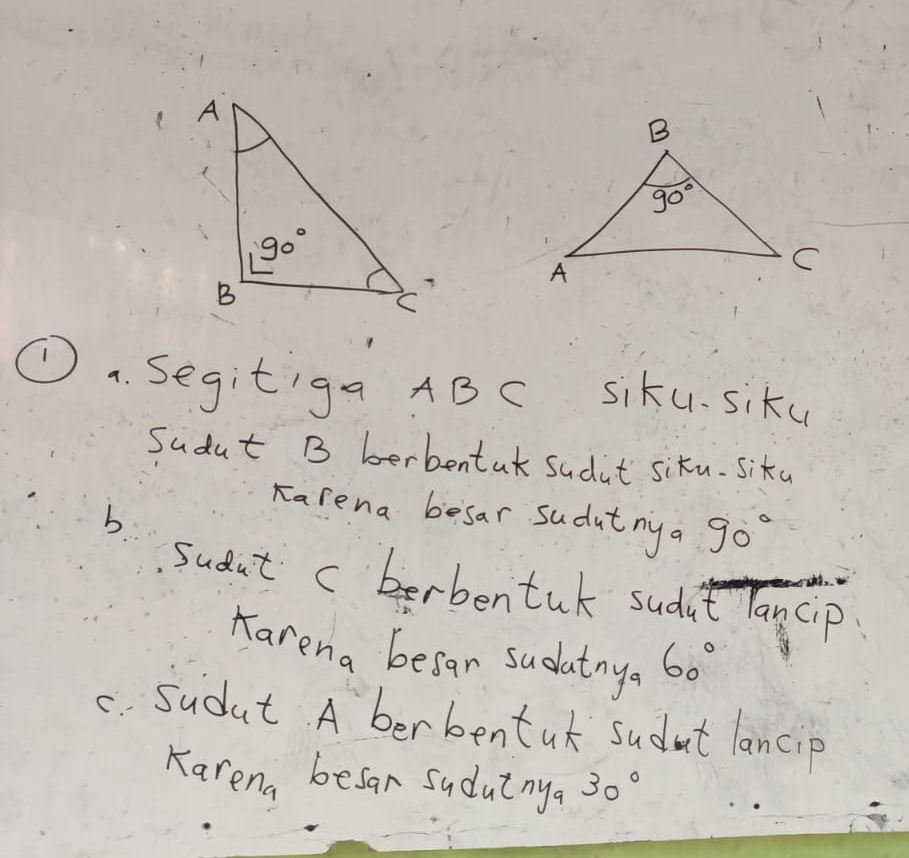 A
90°
B
C
B
90°
A
C
1 a. Segitiga ABC siku-siku
Sudut B berbentuk sudut siku-siku
Karena besar sudutnya 90°
b. Sudut C berbentuk sudut lancip
Karena besar sudutnya 60°
c. Sudut A berbentuk sudut lancip
Karena besar sudutnya 30°